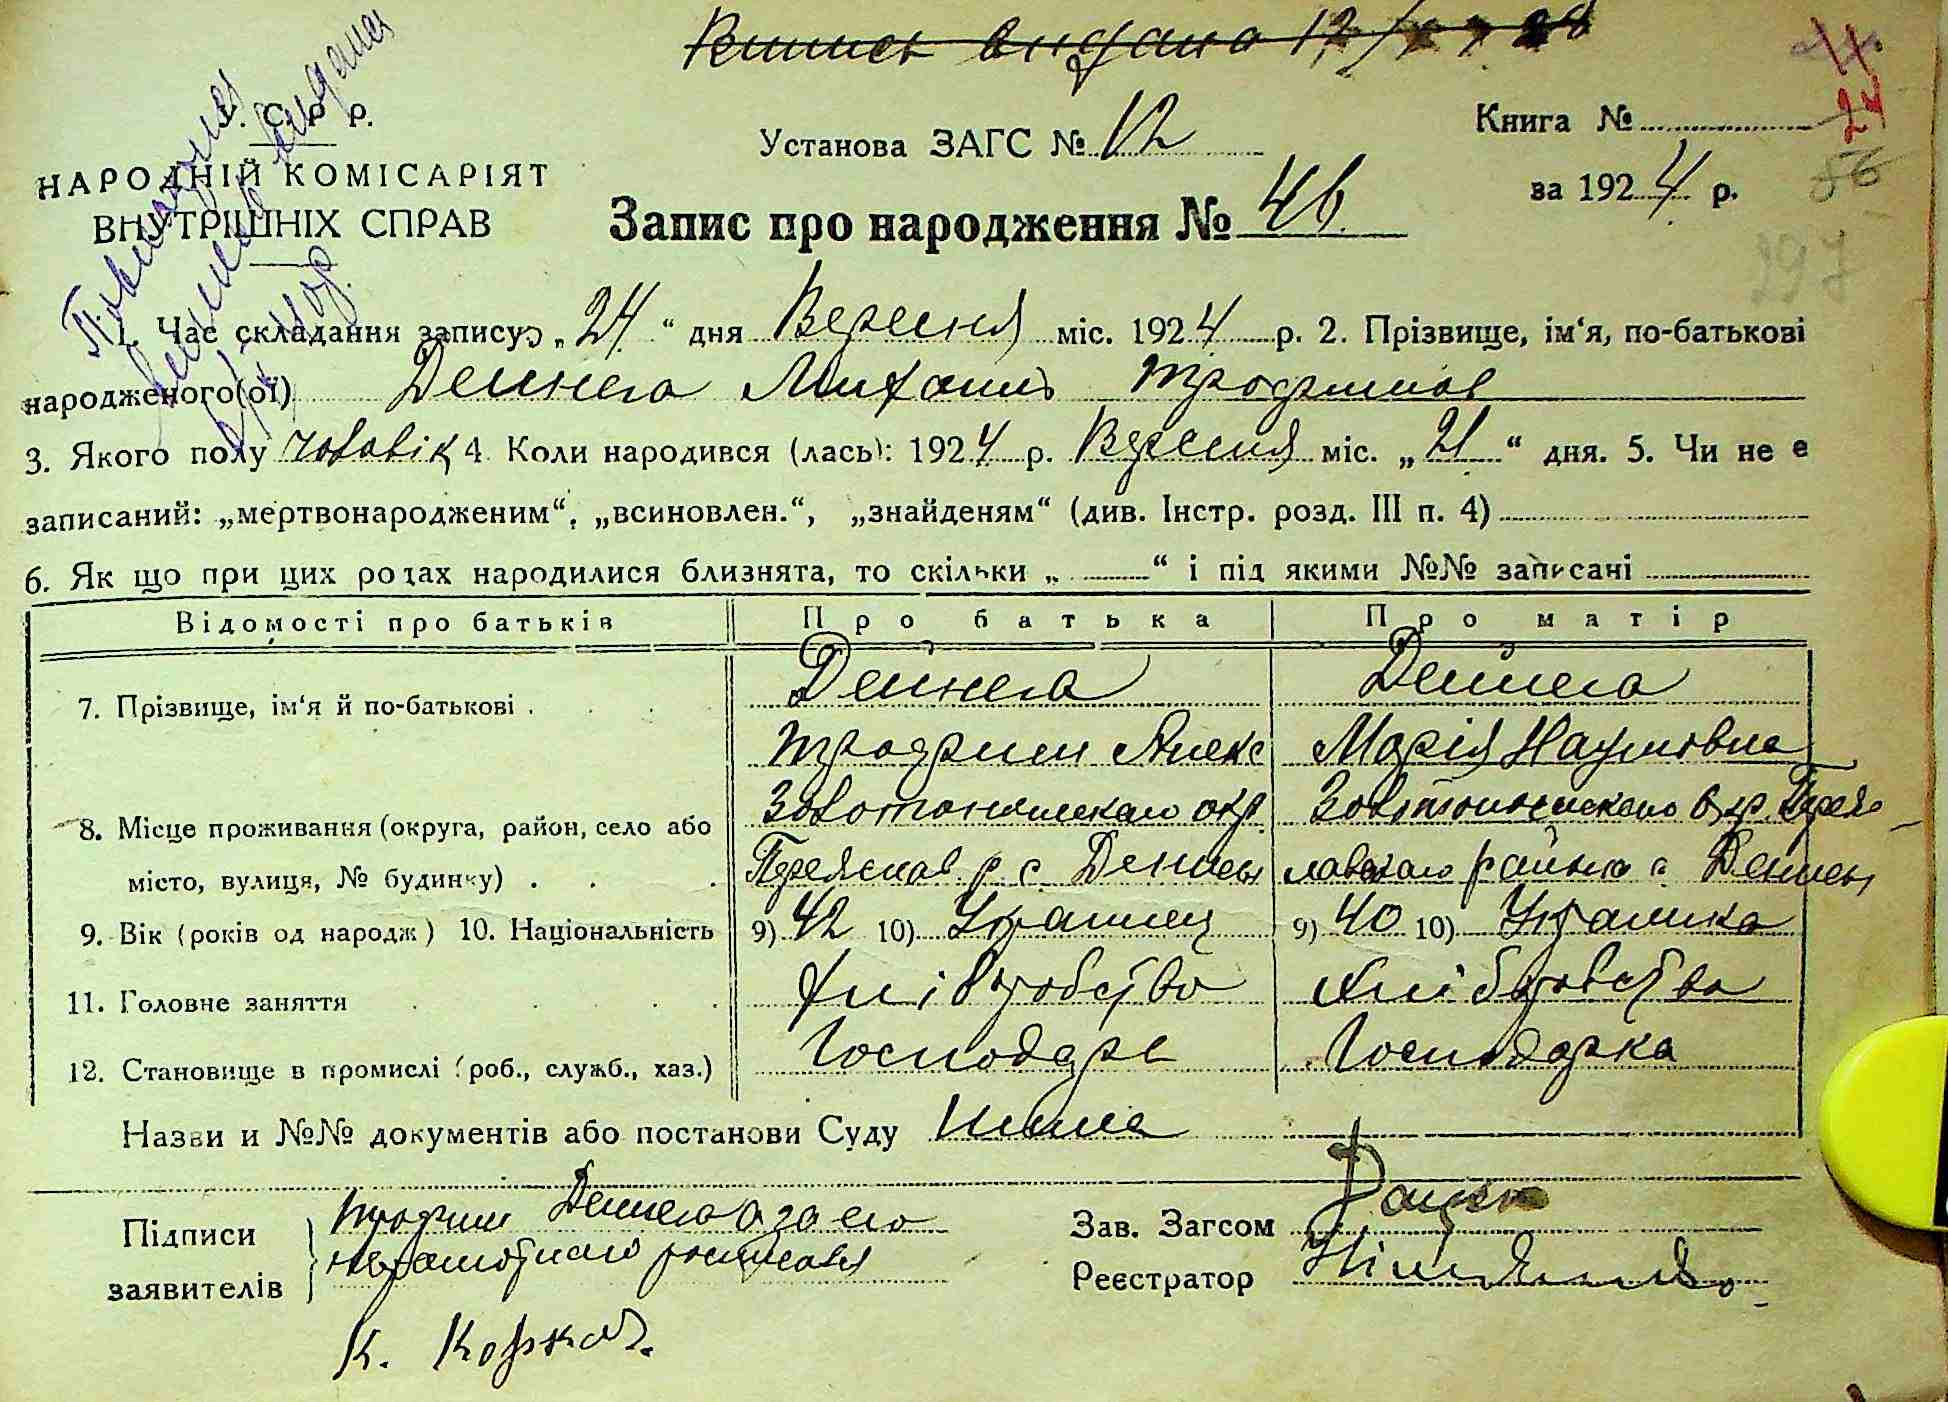 Випись видана 12/
У. С. Р. Р.
НАРОДНІЙ КОМІСАРІЯТ
ВНУТРІШНІХ СПРАВ
Повторная
выдана
Установа ЗАГС № 12
Книга №
за 1924 р.
24
56
297
Запис про народження № 46
1. Час складання запису: „24“ дня Вересня міс. 1924 р. 2. Прізвище, ім‘я, по-батькові
народженого(ої) Дейнега Михаил Трофимов
3. Якого полу чоловік 4. Коли народився (лась): 1924 р. Вересня міс. „21“ дня. 5. Чи не є
записаний: „мертвонародженим“, „всиновлен.“, „знайденям“ (див. Інстр. розд. III п. 4)
6. Як що при цих родах народилися близнята, то скільки „ “ і під якими №№ записані
Відомості про батьків Про батька Про матір
7. Прізвище, ім‘я й по-батькові . Дейнега Дейнега
Трофим Алекс Марія Наумовна
8. Місце проживання (округа, район, село або Золотоношскаго окр. Золотоношскаго Окр. Перея
місто, вулиця, № будинку) . Переяслав. р. с. Денисы славскаго района с. Денисы
9. Вік (років од народж) 10. Національність 9) 42 10) Украинец 9) 40 10) Украинка
11. Головне заняття Хліборобство Хліборобство
12. Становище в промислі (роб., служб., хаз.) Господарь Господарка
Назви и №№ документів або постанови Суду Нима
Підписи
заявителів
Трофим Дейнега а за его
неграмотнаго росписався
К. Коржов.
Зав. Загсом
Реєстратор